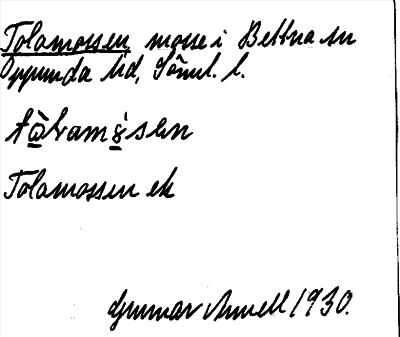 Tolamossen mosse i Bettna sn
Oppunda hd, Söml. l.
Tolamossen ek
Gunnar Annell 1930.